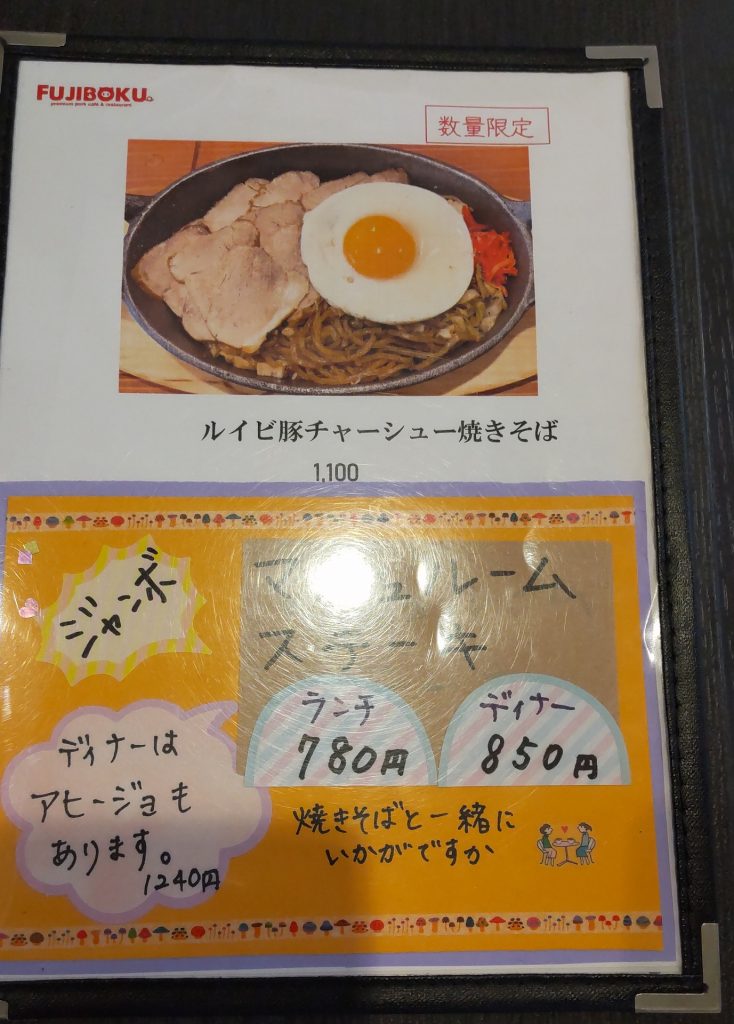 FUJIBOKU
premium pork café & restaurant
数量限定
ルイビ豚チャーシュー焼きそば
1,100
ジャンボ
マッシュルーム
ステーキ
ランチ
780円
ディナー
850円
ディナーは
アヒージョも
あります。
1240円
焼きそばと一緒に
いかがですか